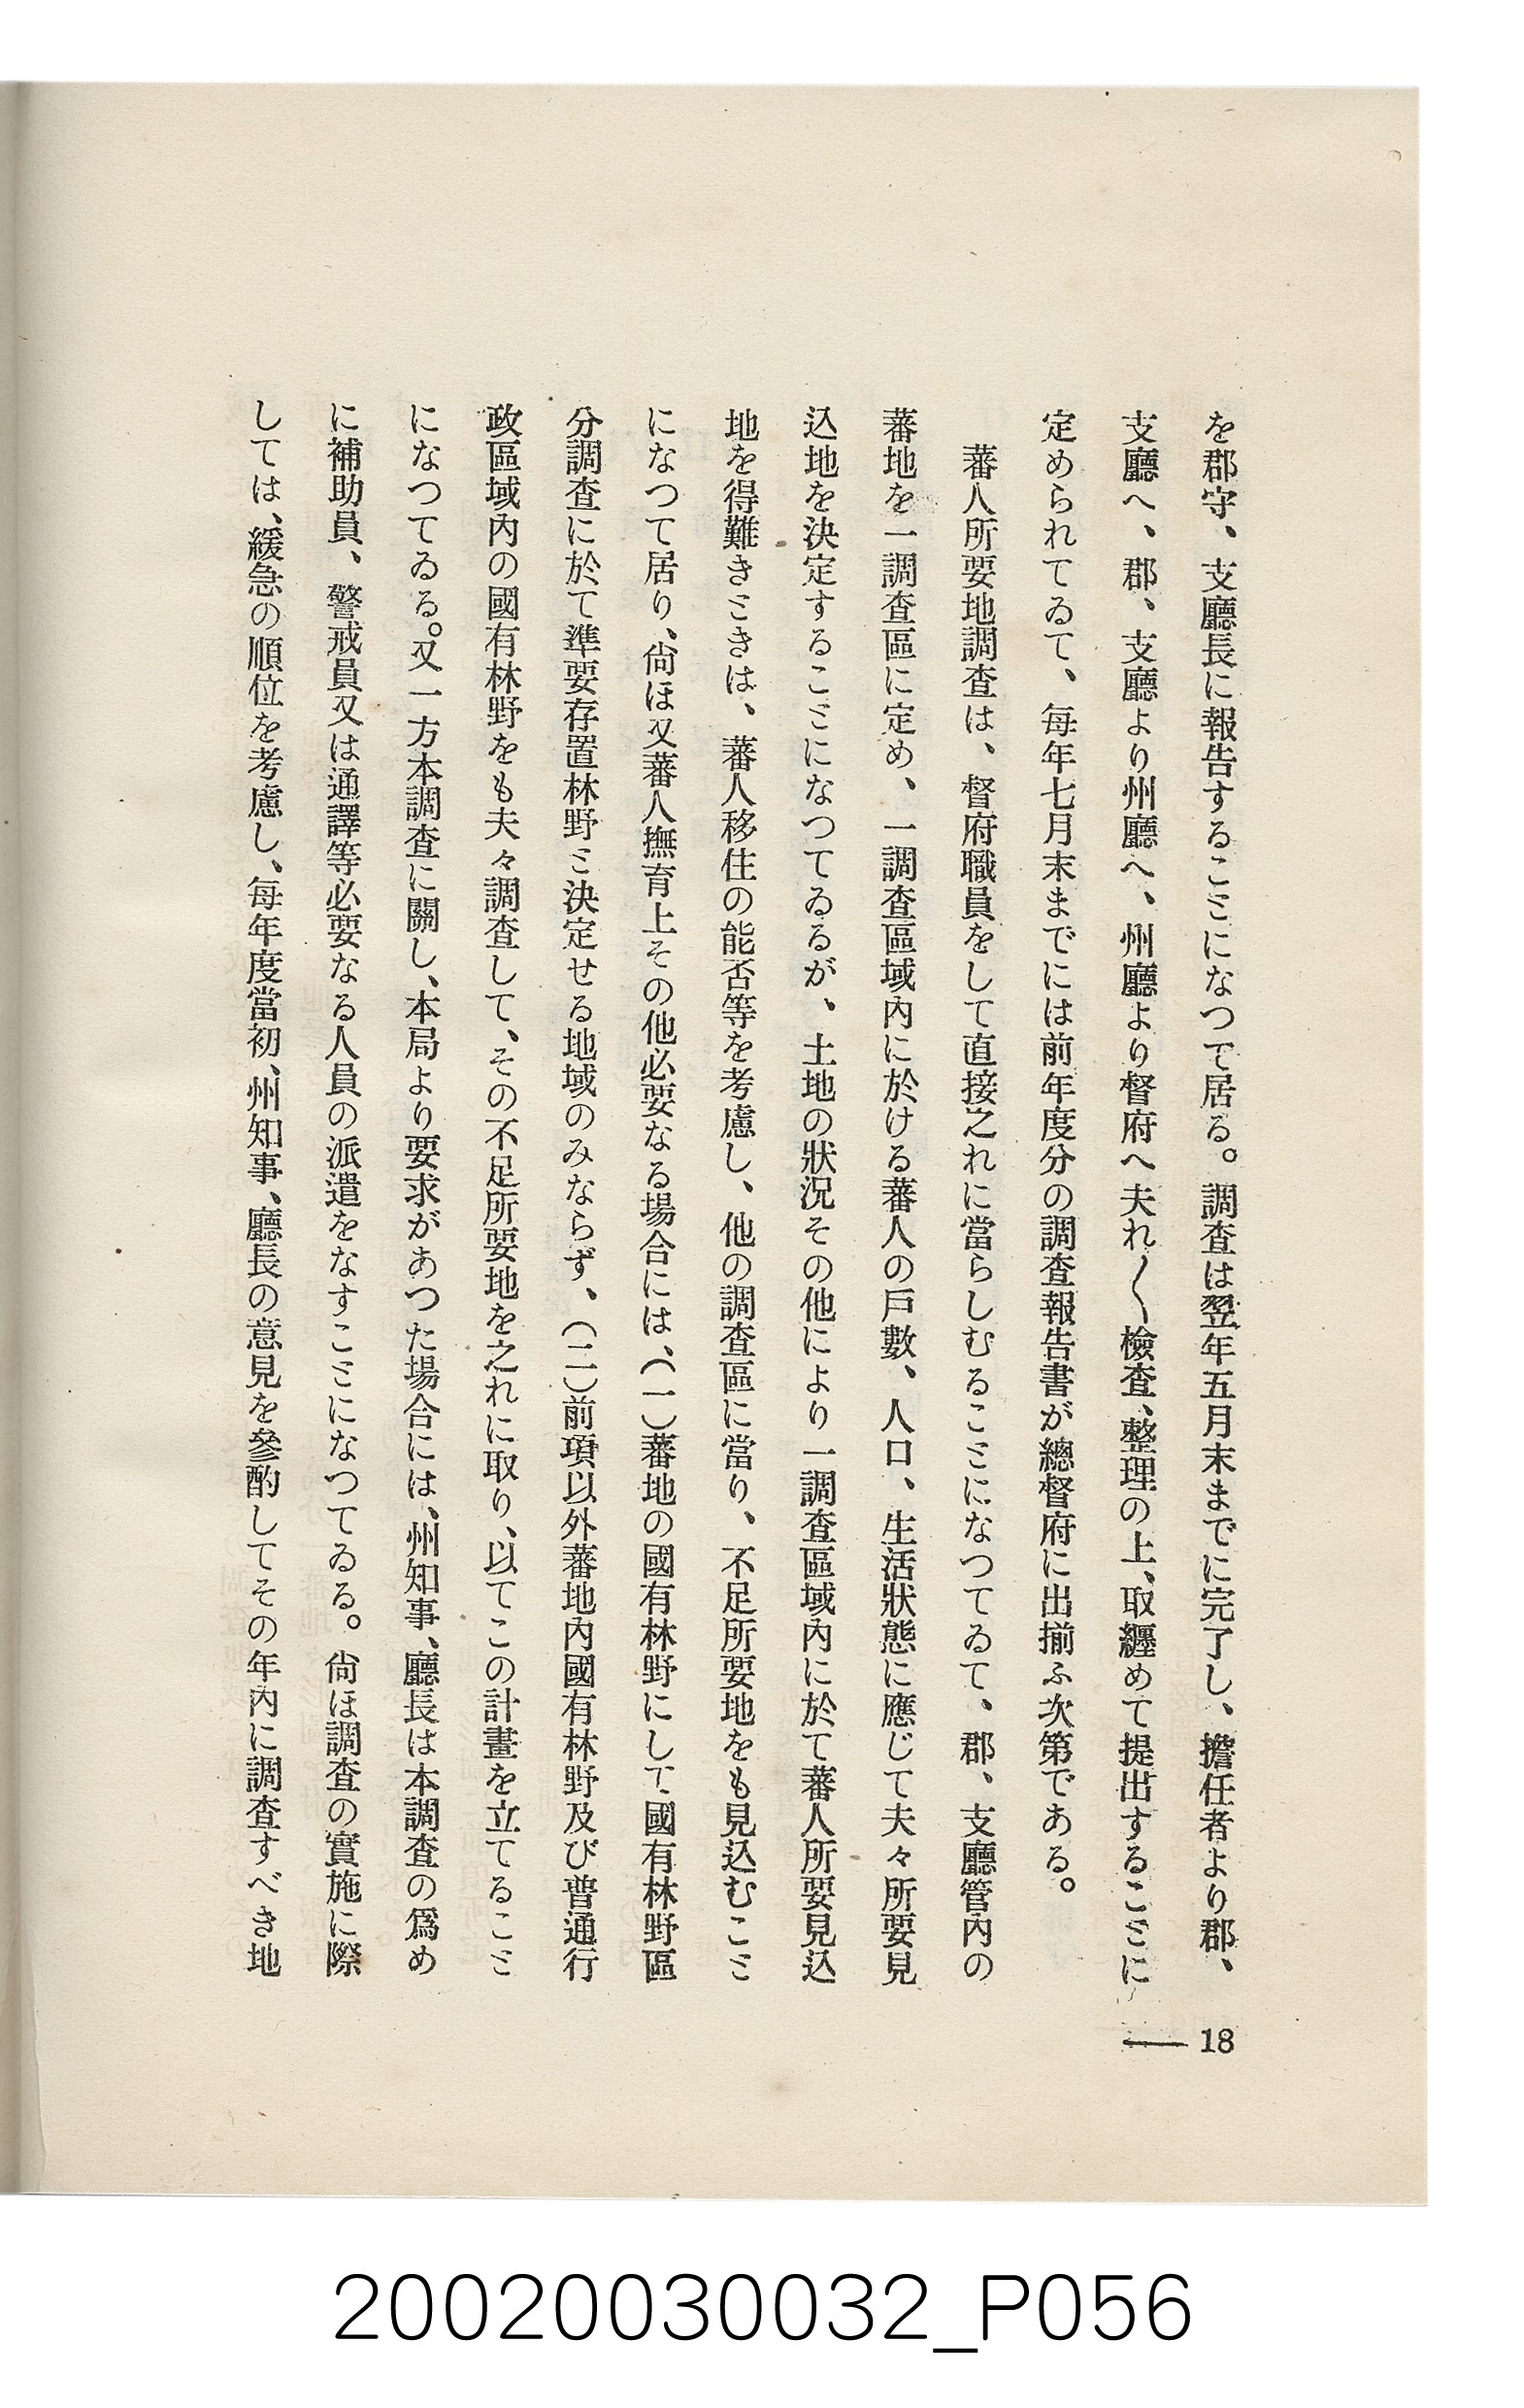 を郡守、支廳長に報告することになつて居る。調査は翌年五月末までに完了し、擔任者より郡、
支廳へ、郡、支廳より州廳へ、州廳より督府へ夫れ〱檢査、整理の上、取纏めて提出することに
定められてゐて、每年七月末までには前年度分の調査報告書が總督府に出揃ふ次第である。
蕃人所要地調査は、督府職員をして直接之れに當らしむることになつてゐて、郡、支廳管內の
蕃地を一調査區に定め、一調査區域內に於ける蕃人の戶數、人口、生活狀態に應じて夫々所要見
込地を決定することになつてゐるが、土地の狀況その他により一調査區域內に於て蕃人所要見込
地を得難きときは、蕃人移住の能否等を考慮し、他の調査區に當り、不足所要地をも見込むこと
になつて居り、尙ほ又蕃人撫育上その他必要なる場合には、(一)蕃地の國有林野にして國有林野區
分調査に於て準要存置林野と決定せる地域のみならず、(二)前項以外蕃地內國有林野及び普通行
政區域內の國有林野をも夫々調査して、その不足所要地を之れに取り、以てこの計畫を立てること
になつてゐる。又一方本調査に關し、本局より要求があつた場合には、州知事、廳長は本調査の爲め
に補助員、警戒員又は通譯等必要なる人員の派遣をなすことになつてゐる。尙ほ調査の實施に際
しては、緩急の順位を考慮し、每年度當初、州知事、廳長の意見を參酌してその年內に調査すべき地
18
20020030032_P056